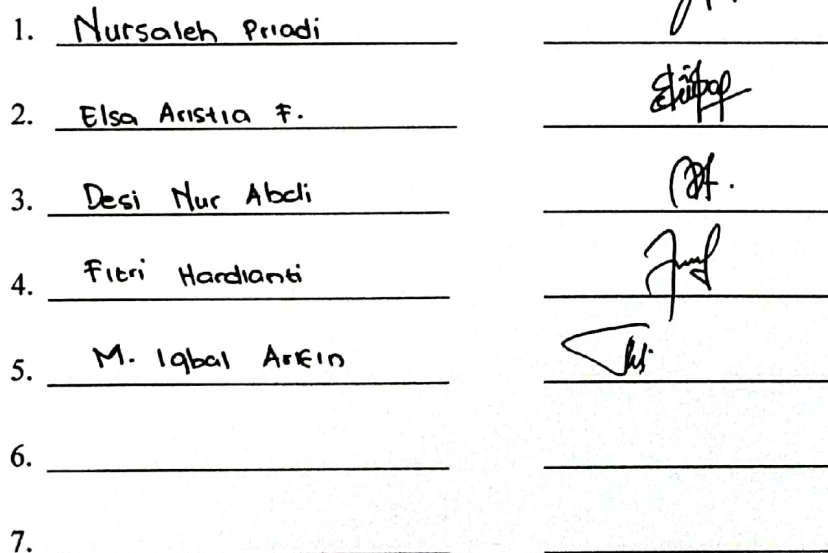 1. Nursaleh Priadi
2. Elsa Aristia F.
3. Desi Nur Abdi
4. Fitri Hardianti
5. M. Iqbal
6.
7.